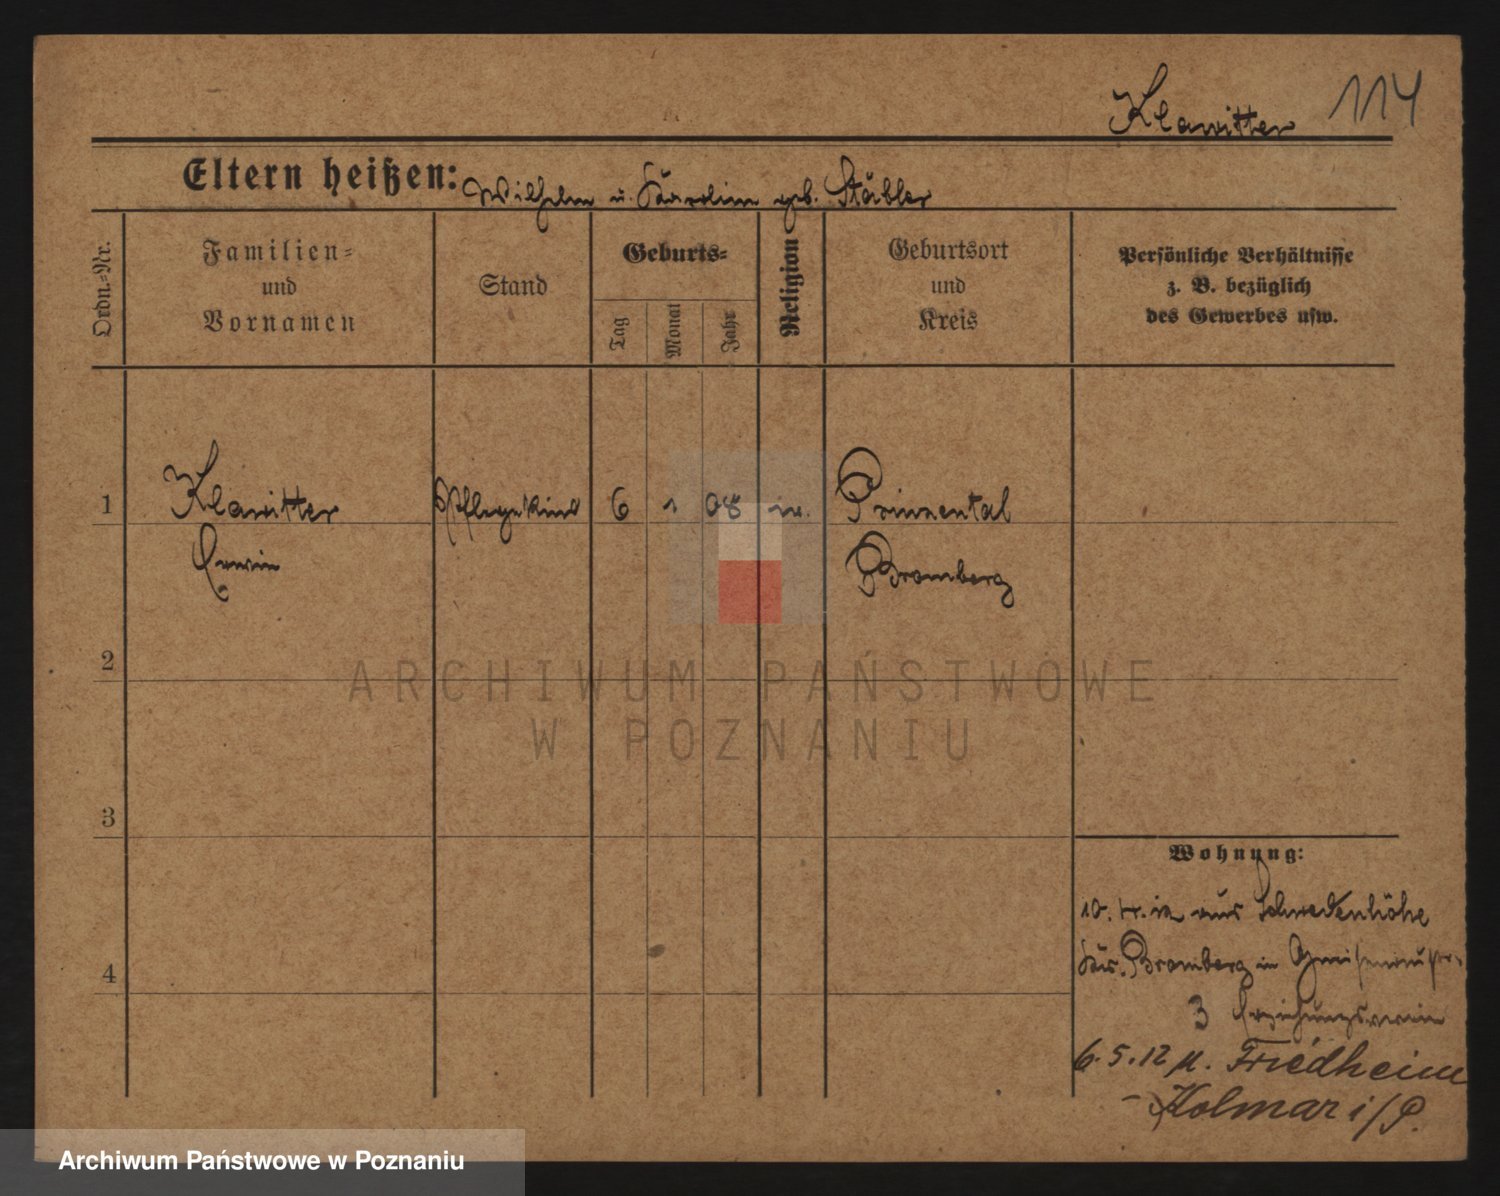 Klawitter 114
Eltern heißen: Wilhelm u. Karolin geb. Stäbler
Ordn.-Nr.
Familien-
und
Vornamen
Stand
Geburts-
Tag
Monat
Jahr
Religion
Geburtsort
und
Kreis
Persönliche Verhältnisse
z. B. bezüglich
des Gewerbes usw.
1 Klawitter Pflegekind 6 1 08 Prinzental
Erwin Bromberg
2
ARCHIWUM PAŃSTWOWE
W POZNANIU
3
Wohnung:
10. 4. 12 aus Schwedenhöhe
Krs. Bromberg in
4
3 Erziehungsverein
6. 5. 12 n. Friedheim
- Kolmar i/P.
Archiwum Państwowe w Poznaniu